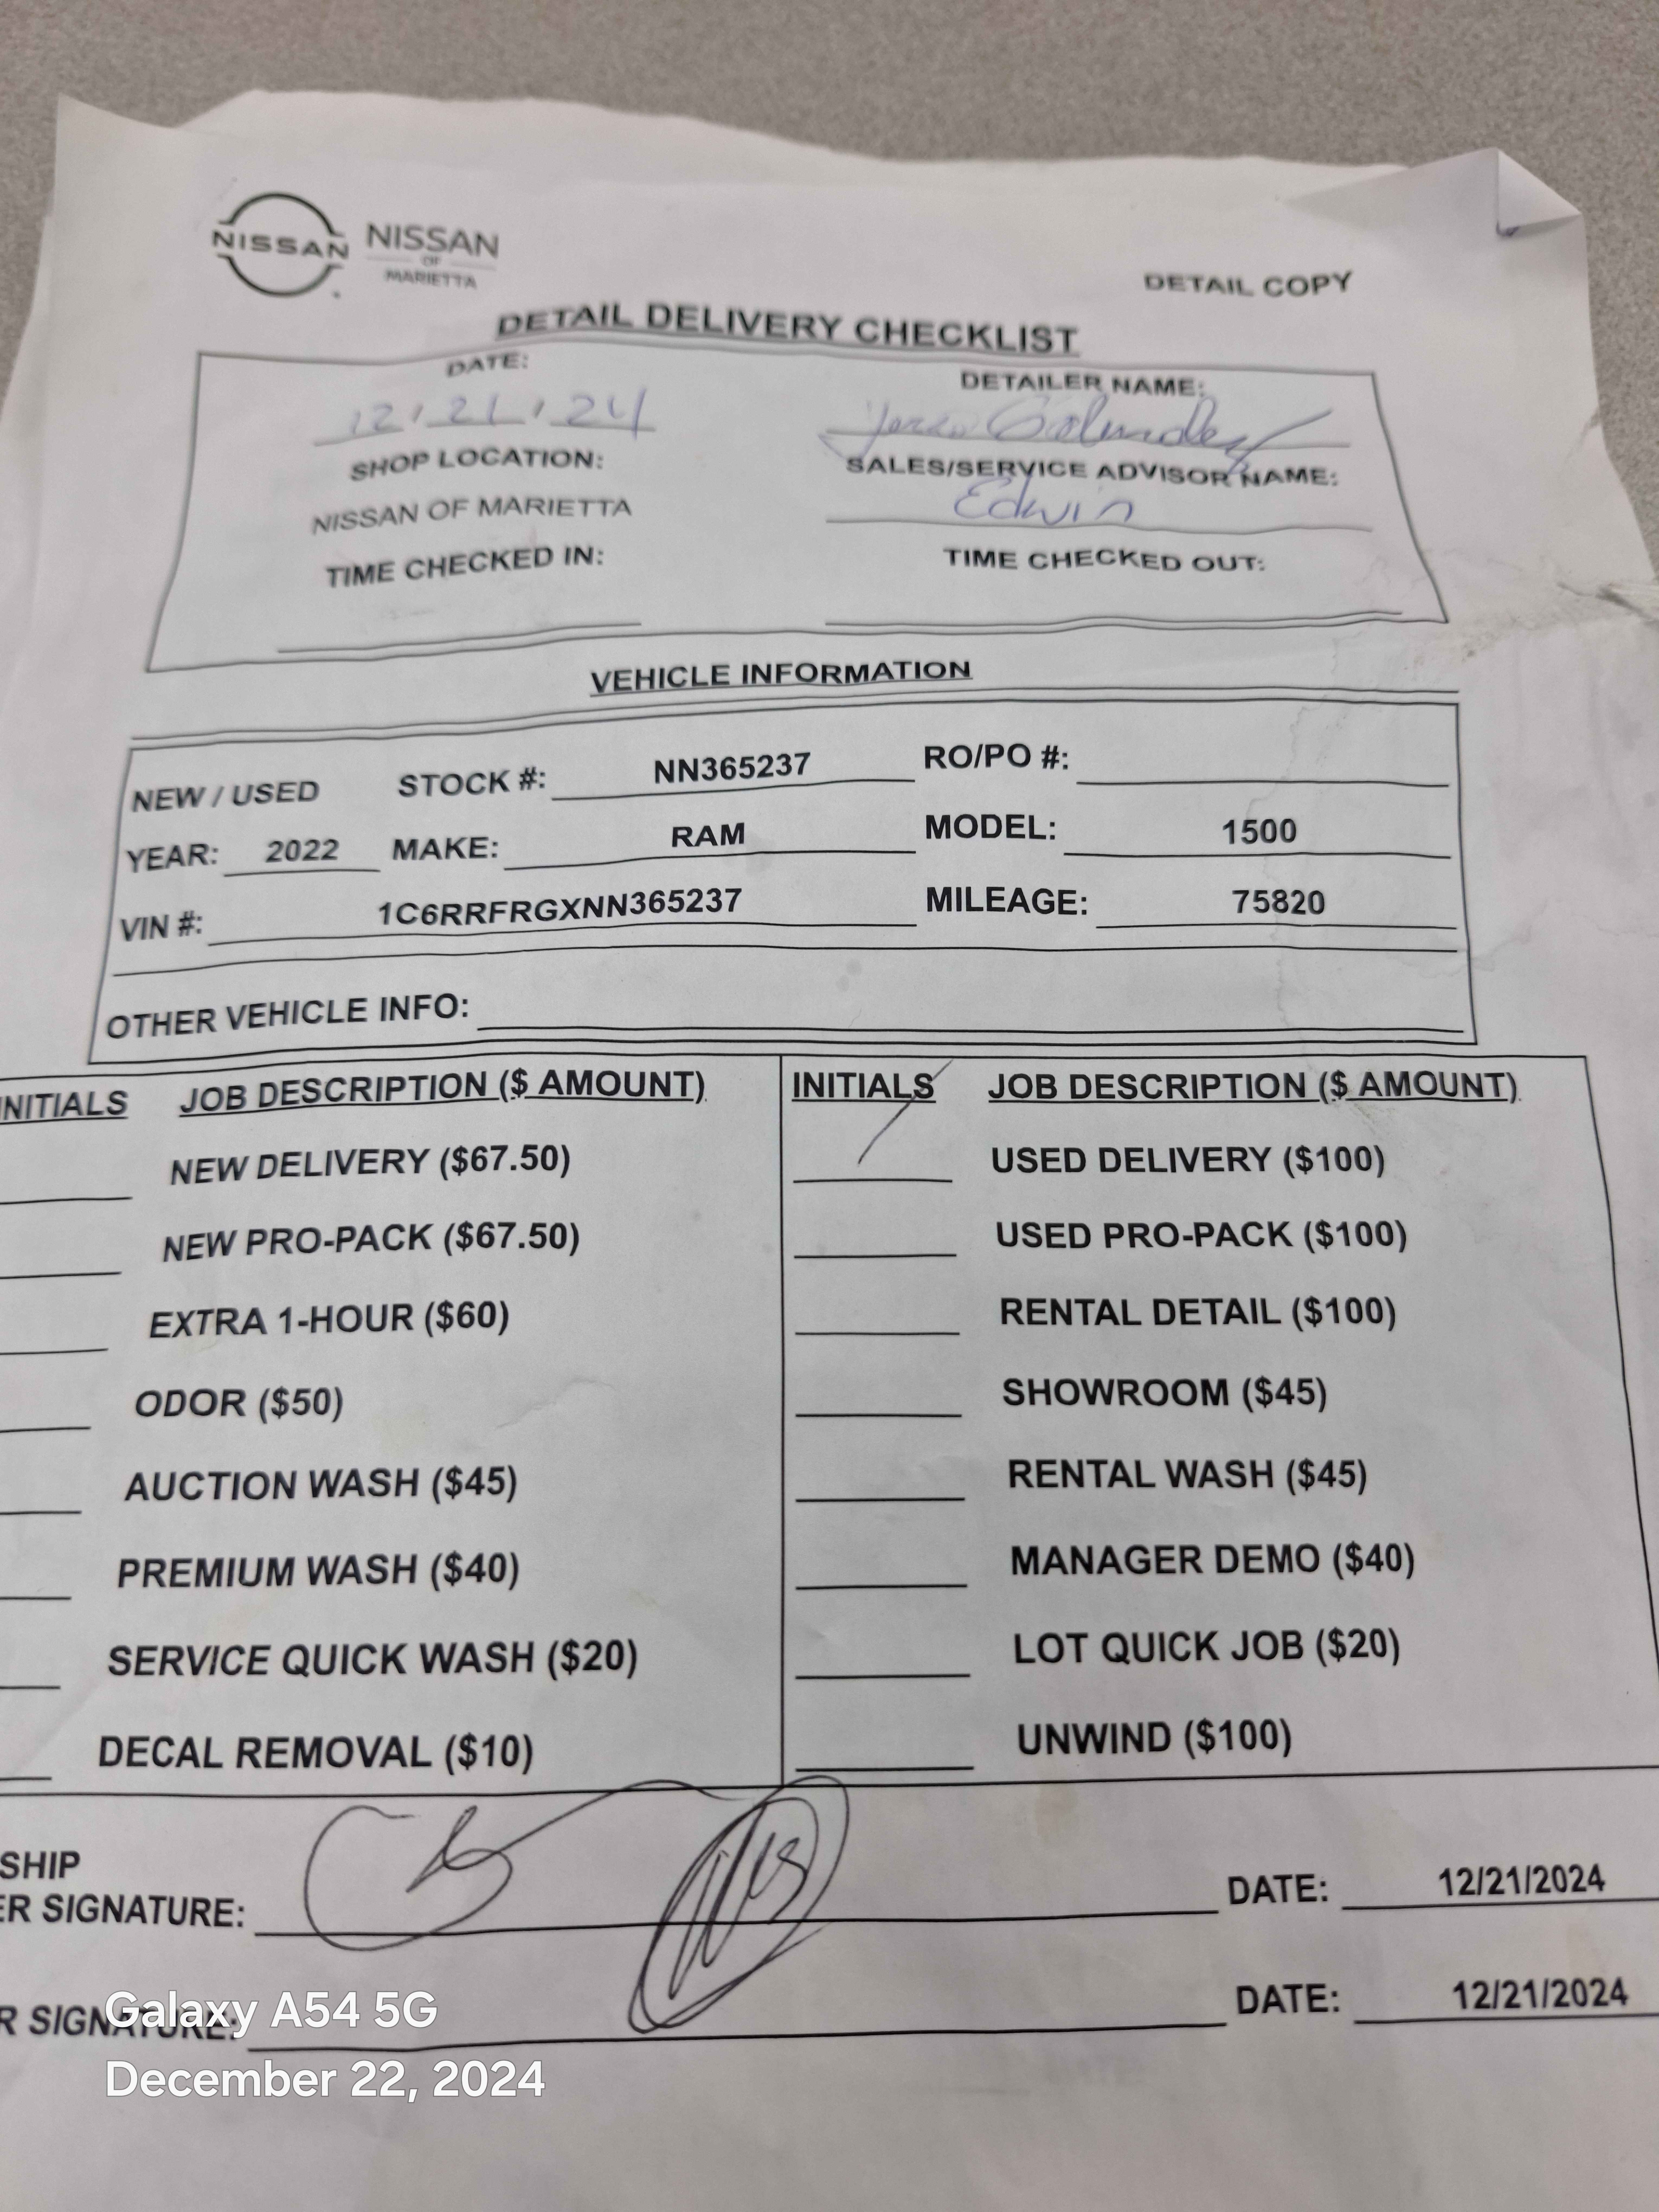 NISSAN NISSAN
OF
MARIETTA
DETAIL COPY
DETAIL DELIVERY CHECKLIST
DATE: DETAILER NAME:
12/21/24
SHOP LOCATION: SALES/SERVICE ADVISOR NAME:
NISSAN OF MARIETTA Edwin
TIME CHECKED IN: TIME CHECKED OUT:
VEHICLE INFORMATION
NEW / USED STOCK #: NN365237 RO/PO #:
YEAR: 2022 MAKE: RAM MODEL: 1500
VIN #: 1C6RRFRGXNN365237 MILEAGE: 75820
OTHER VEHICLE INFO:
INITIALS JOB DESCRIPTION ($ AMOUNT) INITIALS JOB DESCRIPTION ($ AMOUNT)
NEW DELIVERY ($67.50) USED DELIVERY ($100)
NEW PRO-PACK ($67.50) USED PRO-PACK ($100)
EXTRA 1-HOUR ($60) RENTAL DETAIL ($100)
ODOR ($50) SHOWROOM ($45)
AUCTION WASH ($45) RENTAL WASH ($45)
PREMIUM WASH ($40) MANAGER DEMO ($40)
SERVICE QUICK WASH ($20) LOT QUICK JOB ($20)
DECAL REMOVAL ($10) UNWIND ($100)
SHIP
ER SIGNATURE: DATE: 12/21/2024
R SIGNATURE: DATE: 12/21/2024
Galaxy A54 5G
December 22, 2024